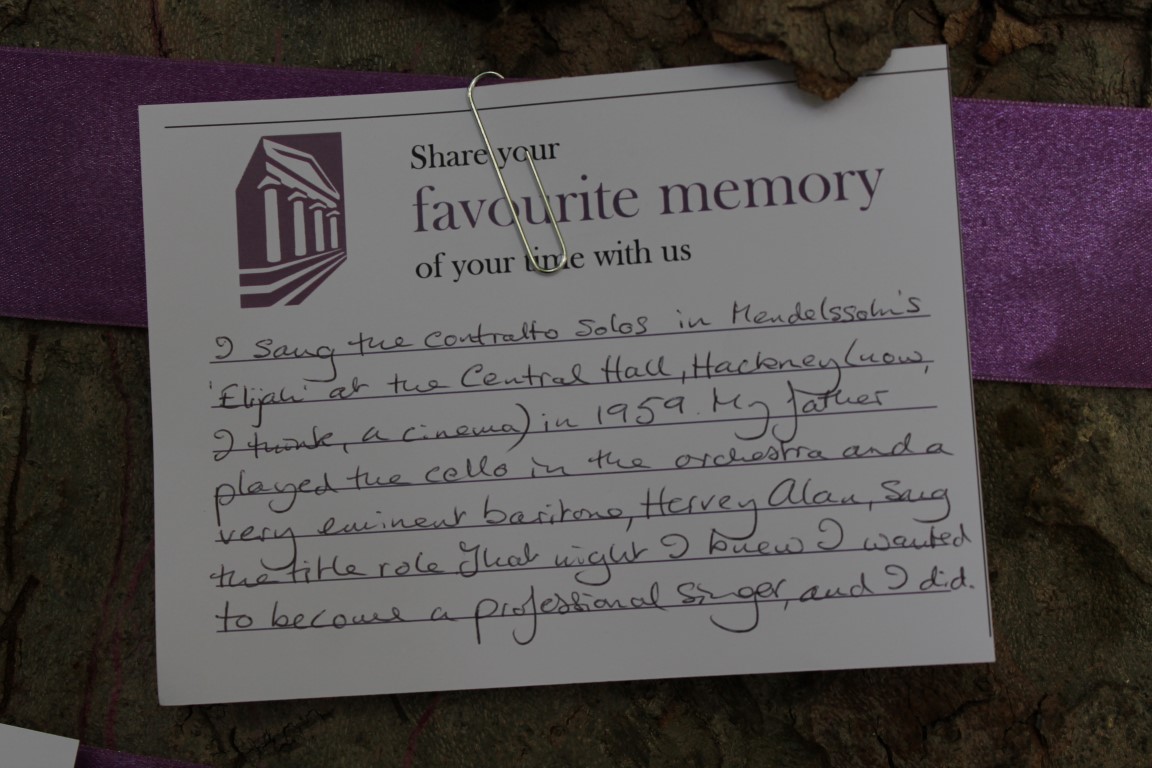 Share your
favourite memory
of your time with us
I sang the contralto solos in Mendelssohn's
'Elijah' at the Central Hall, Hackney (now,
I think, a cinema) in 1959. My father
played the cello in the orchestra and a
very eminent baritone, Hervey Alan, sang
the title role. That night I knew I wanted
to become a professional singer, and I did.